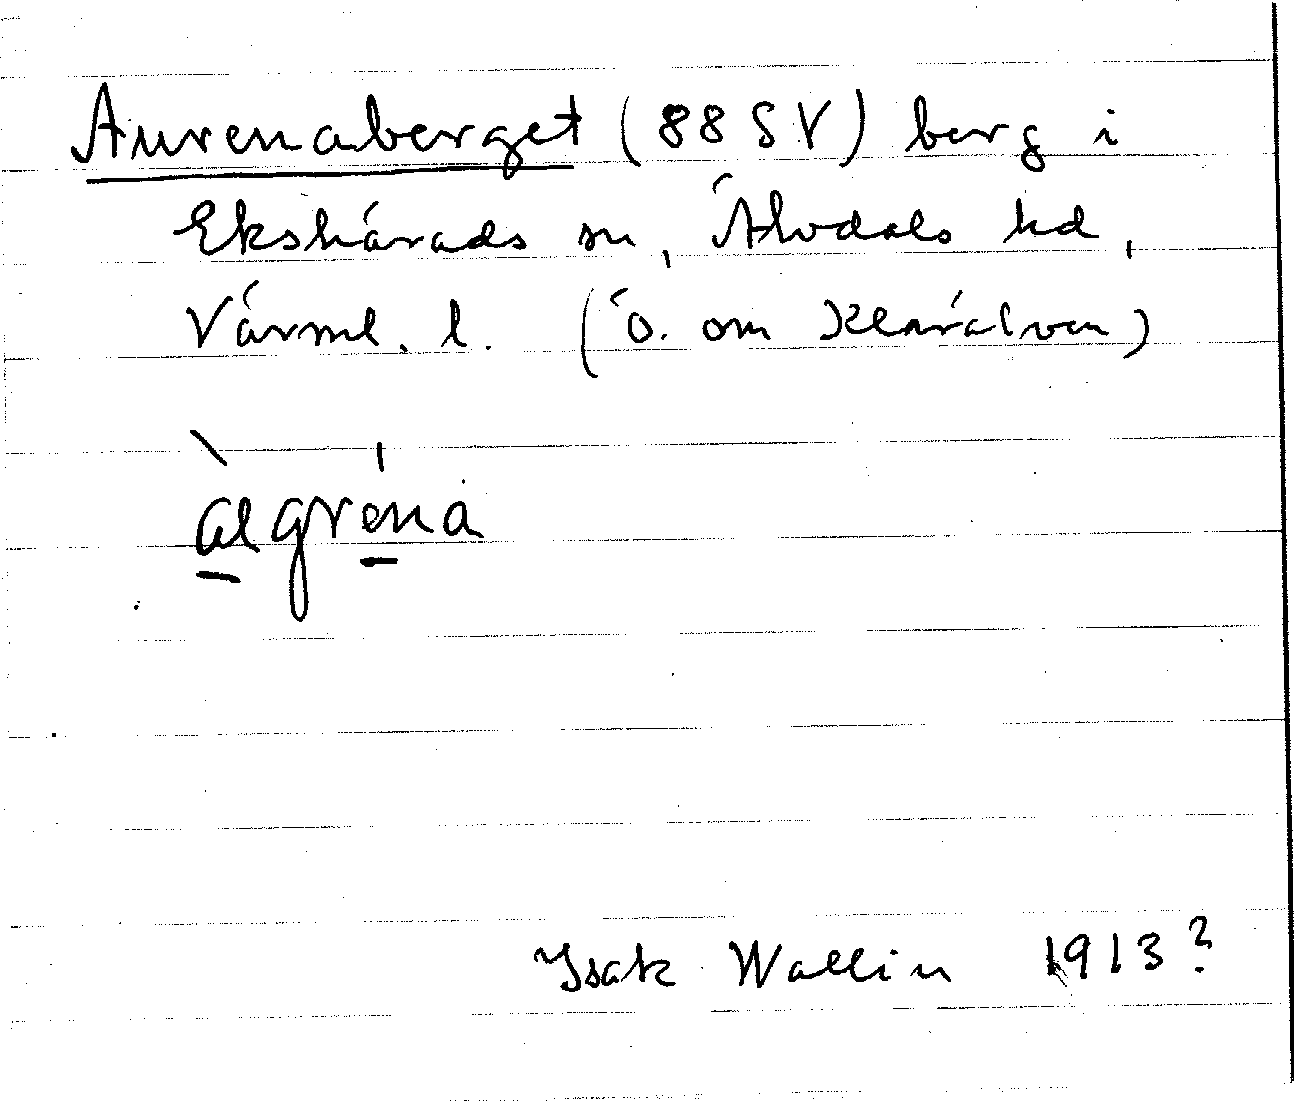 Aurenaberget (88 SV) berg i
Ekshärads sn, Älvdals hd,
Värml. l. (ö. om Klarälven)
Isak Wallin 1913?